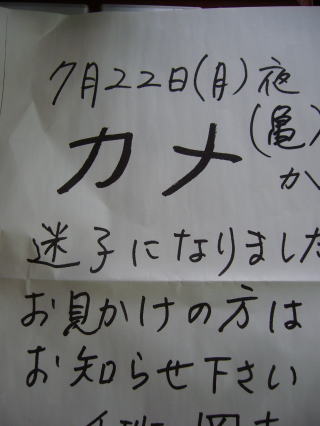 7月22日(月)夜
カメ(亀)
が
迷子になりました
お見かけの方は
お知らせ下さい